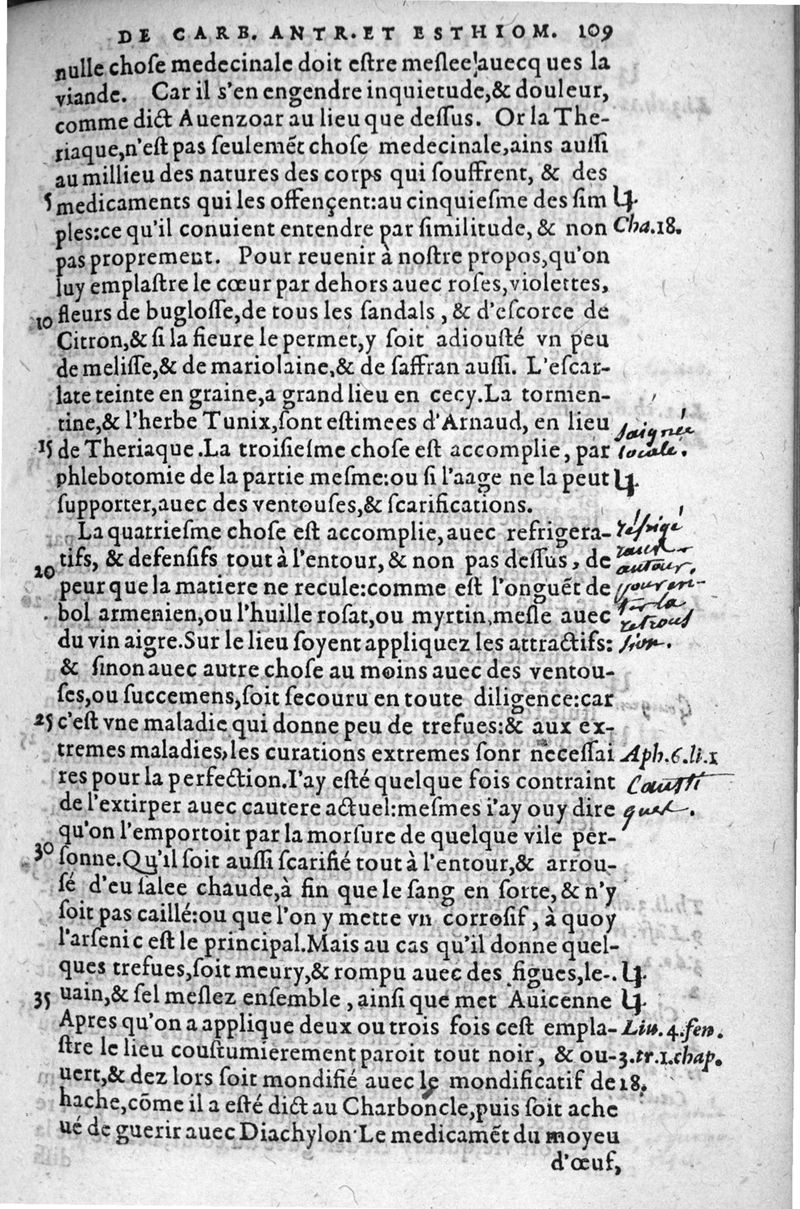 DE CARB. ANTR. ET ESTHIOM. 109
nulle choſe medecinale doit eſtre meſlee auecq ues la
viande. Car il s'en engendre inquietude,& douleur,
comme dict Auenzoar au lieu que deſſus. Or la The-
riaque,n'eſt pas ſeulemẽt choſe medecinale,ains auſſi
au millieu des natures des corps qui ſouffrent, & des
5 medicaments qui les offençent:au cinquieſme des ſim
ples:ce qu'il conuient entendre par ſimilitude, & non Cha.18.
pas proprement. Pour reuenir à noſtre propos,qu'on
luy emplaſtre le cœur par dehors auec roſes,violettes,
10 fleurs de bugloſſe,de tous les ſandals , & d'eſcorce de
Citron,& ſi la fieure le permet,y ſoit adiouſté vn peu
de meliſſe,& de mariolaine,& de ſaffran auſſi. L'eſcar-
late teinte en graine,a grand lieu en cecy.La tormen-
tine,& l'herbe Tunix,ſont eſtimees d'Arnaud, en lieu ſaignée
15 de Theriaque .La troiſieſme choſe eſt accomplie, par locale.
phlebotomie de la partie meſme:ou ſi l'aage ne la peut
ſupporter,auec des ventouſes,& ſcarifications.
La quatrieſme choſe eſt accomplie,auec refrigera-
20 tifs, & defenſifs tout à l'entour,& non pas deſſus, de autour.
peur que la matiere ne recule:comme eſt l'onguẽt de
bol armenien,ou l'huille roſat,ou myrtin,meſle auec
du vin aigre.Sur le lieu ſoyent appliquez les attractifs:
& ſinon auec autre choſe au moins auec des ventou-
ſes,ou ſuccemens,ſoit ſecouru en toute diligence:car
25 c'eſt vne maladie qui donne peu de trefues:& aux ex-
tremes maladies,les curations extremes ſonr neceſſai Aph.6.li.1
res pour la perfection.I'ay eſté quelque fois contraint
de l'extirper auec cautere actuel:meſmes i'ay ouy dire
qu'on l'emportoit par la morſure de quelque vile per-
30 ſonne.Qu'il ſoit auſſi ſcarifié tout à l'entour,& arrou-
ſé d'eu ſalee chaude,à fin que le ſang en ſorte, & n'y
ſoit pas caillé:ou que l'on y mette vn corroſif, à quoy
l'arſenic eſt le principal.Mais au cas qu'il donne quel-
ques trefues,ſoit meury,& rompu auec des figues,le-
35 uain,& ſel meſlez enſemble , ainſi que met Auicenne
Apres qu'on a applique deux ou trois fois ceſt empla- Liu.4.fen.
ſtre le lieu couſtumierement paroit tout noir, & ou- 3.tr.1.chap.
uert,& dez lors ſoit mondifié auec le mondificatif de 18.
hache,cõme il a eſté dict au Charboncle,puis ſoit ache
ué de guerir auec Diachylon.Le medicamẽt du moyeu
d'œuf,